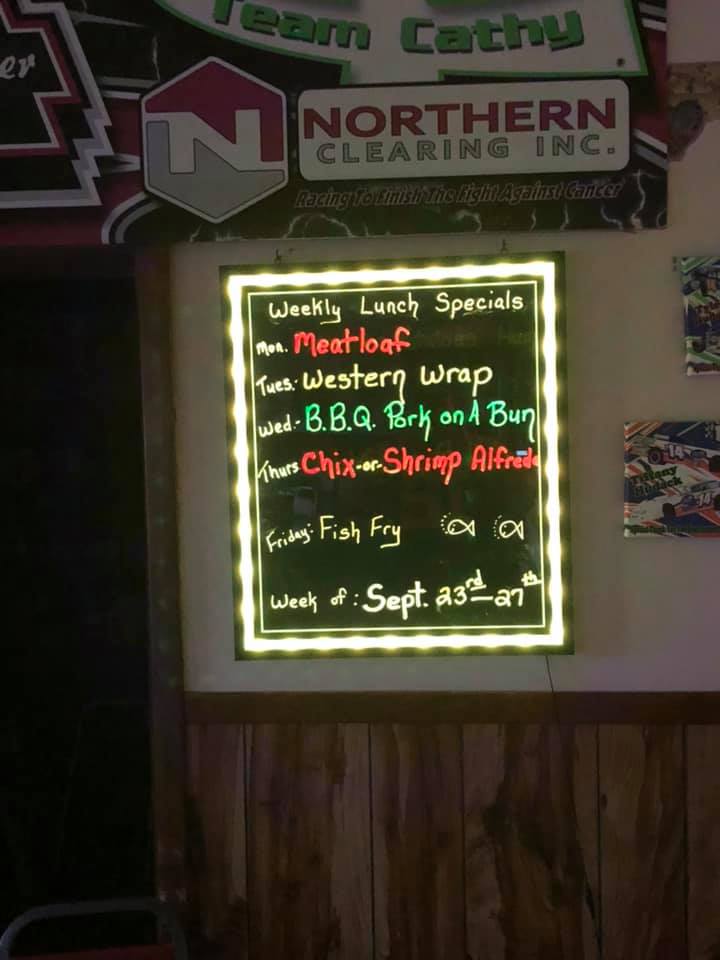 er
Team Cathy
N NORTHERN
CLEARING INC.
Racing To Finish The Fight Against Cancer
Weekly Lunch Specials
Mon. Meatloaf
Tues: Western Wrap
Wed.- B.B.Q. Pork on A Bun
Thurs Chix-or-Shrimp Alfredo
Friday: Fish Fry
Week of: Sept. 23rd-27th
14
Tiffany
14